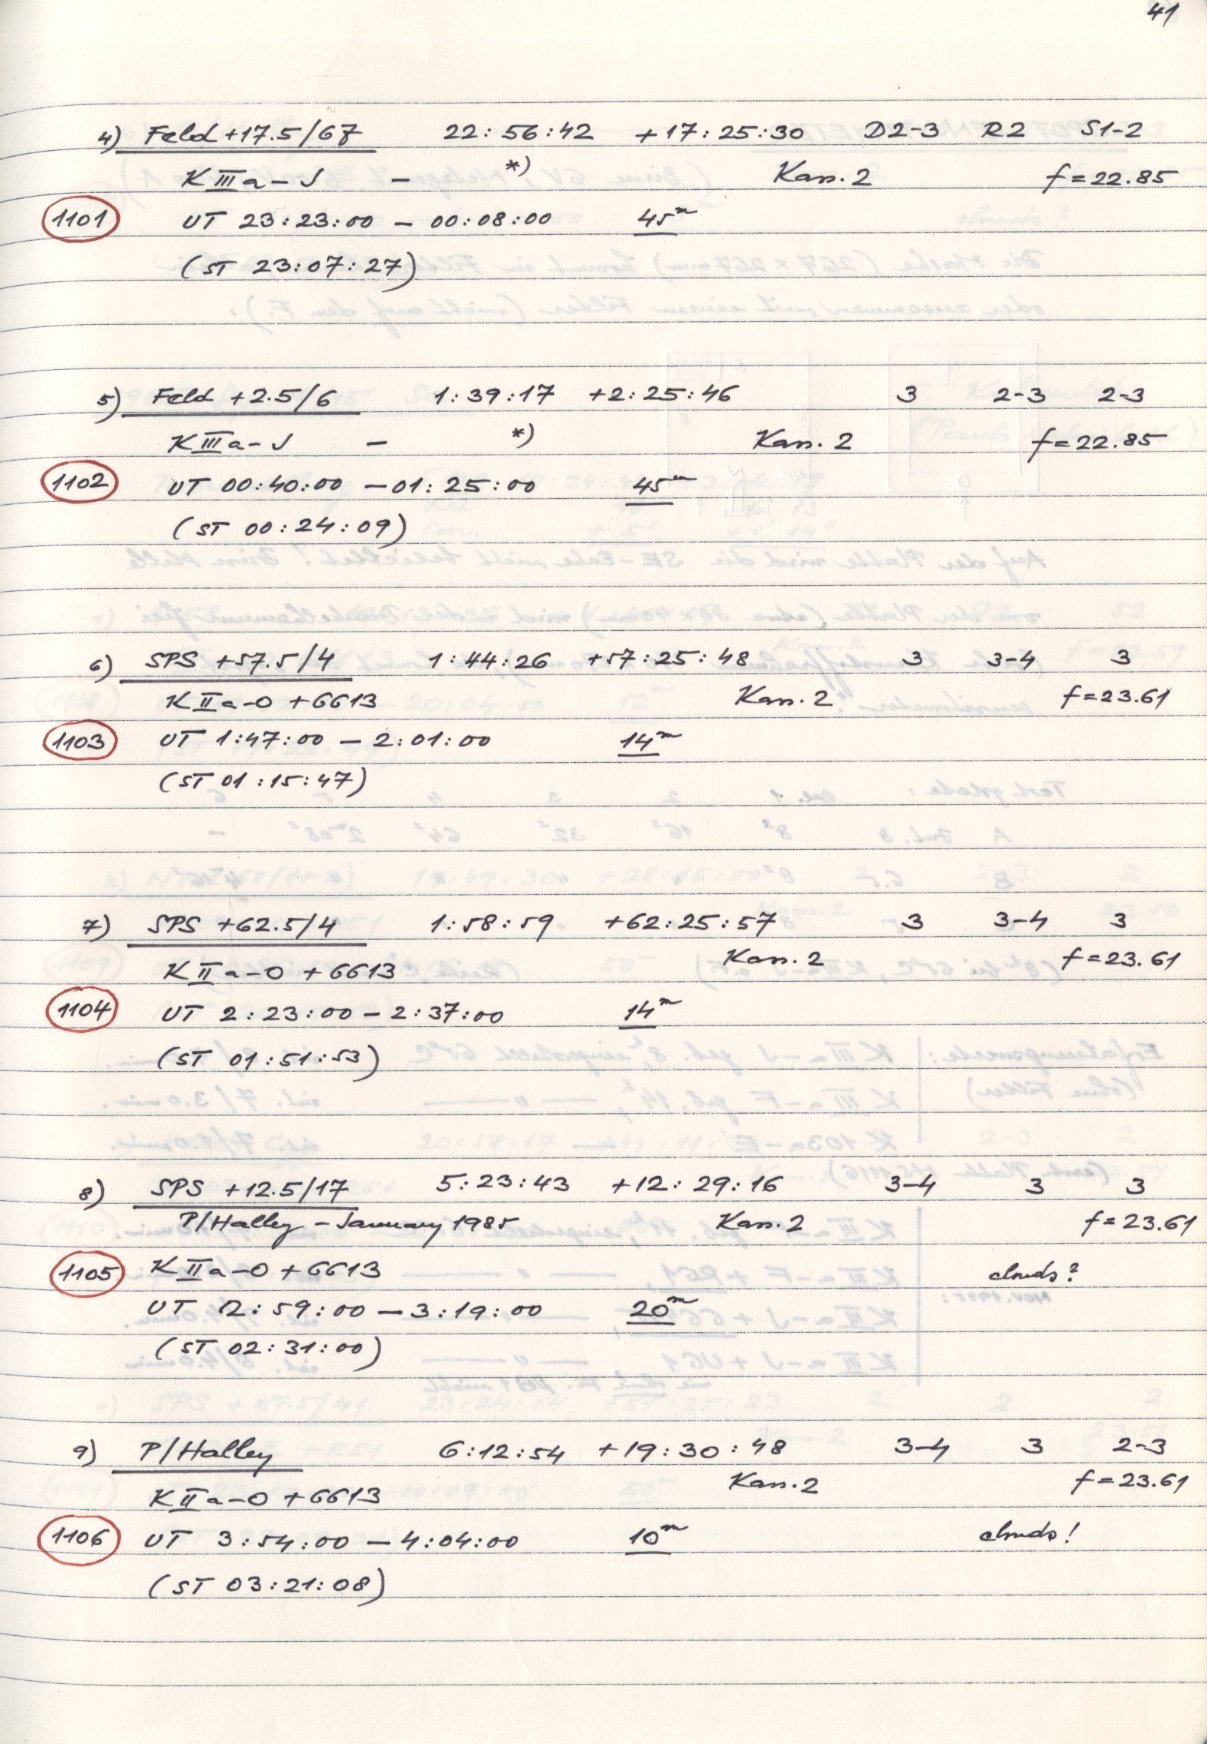 41
4) Feld +17.5/67 22:56:42 +17:25:30 D2-3 R2 S1-2
K III a-J - *) Kass. 2 f=22.85
1101 UT 23:23:00 - 00:08:00 45m
(ST 23:07:27)
5) Feld +2.5/6 1:39:17 +2:25:46 3 2-3 2-3
K III a-J - *) Kass. 2 f=22.85
1102 UT 00:40:00 - 01:25:00 45m
(ST 00:24:09)
6) SPS +57.5/4 1:44:26 +57:25:48 3 3-4 3
K II a-O +GG13 Kass. 2 f=23.61
1103 UT 1:47:00 - 2:01:00 14m
(ST 01:15:47)
7) SPS +62.5/4 1:58:59 +62:25:57 3 3-4 3
K II a-O +GG13 Kass. 2 f=23.61
1104 UT 2:23:00 - 2:37:00 14m
(ST 01:51:53)
8) SPS +12.5/17 5:23:43 +12:29:16 3-4 3 3
P/Halley - January 1985 Kass. 2 f=23.61
1105 K II a-O +GG13 clouds?
UT 2:59:00 - 3:19:00 20m
(ST 02:31:00)
9) P/Halley 6:12:54 +19:30:48 3-4 3 2-3
K II a-O +GG13 Kass. 2 f=23.61
1106 UT 3:54:00 - 4:04:00 10m clouds!
(ST 03:21:08)